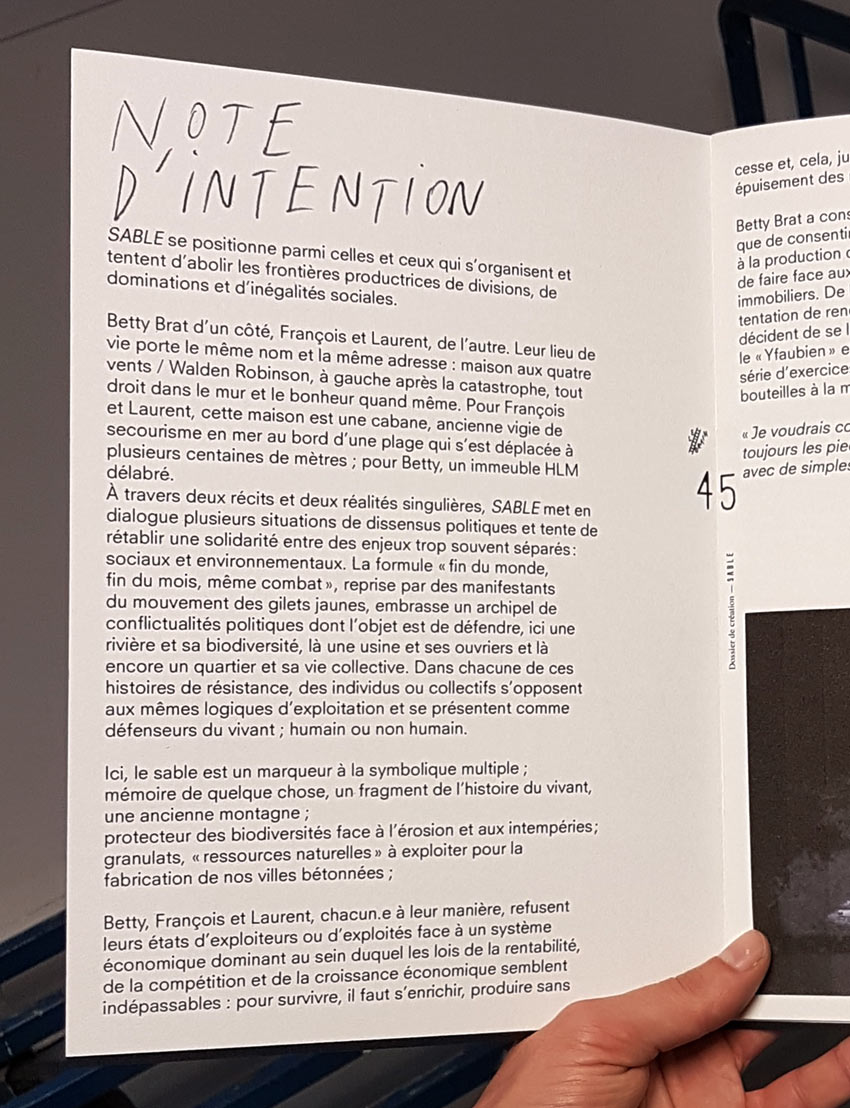 NOTE
D'iNTENTiON
SABLE se positionne parmi celles et ceux qui s'organisent et
tentent d'abolir les frontières productrices de divisions, de
dominations et d'inégalités sociales.
Betty Brat d'un côté, François et Laurent, de l'autre. Leur lieu de
vie porte le même nom et la même adresse : maison aux quatre
vents / Walden Robinson, à gauche après la catastrophe, tout
droit dans le mur et le bonheur quand même. Pour François
et Laurent, cette maison est une cabane, ancienne vigie de
secourisme en mer au bord d'une plage qui s'est déplacée à
plusieurs centaines de mètres ; pour Betty, un immeuble HLM
délabré.
À travers deux récits et deux réalités singulières, SABLE met en
dialogue plusieurs situations de dissensus politiques et tente de
rétablir une solidarité entre des enjeux trop souvent séparés :
sociaux et environnementaux. La formule « fin du monde,
fin du mois, même combat », reprise par des manifestants
du mouvement des gilets jaunes, embrasse un archipel de
conflictualités politiques dont l'objet est de défendre, ici une
rivière et sa biodiversité, là une usine et ses ouvriers et là
encore un quartier et sa vie collective. Dans chacune de ces
histoires de résistance, des individus ou collectifs s'opposent
aux mêmes logiques d'exploitation et se présentent comme
défenseurs du vivant ; humain ou non humain.
Ici, le sable est un marqueur à la symbolique multiple ;
mémoire de quelque chose, un fragment de l'histoire du vivant,
une ancienne montagne ;
protecteur des biodiversités face à l'érosion et aux intempéries;
granulats, « ressources naturelles » à exploiter pour la
fabrication de nos villes bétonnées ;
Betty, François et Laurent, chacun.e à leur manière, refusent
leurs états d'exploiteurs ou d'exploités face à un système
économique dominant au sein duquel les lois de la rentabilité,
de la compétition et de la croissance économique semblent
indépassables : pour survivre, il faut s'enrichir, produire sans
45
Dossier de création — SABLE
cesse et, cela, ju
épuisement des
Betty Brat a cons
que de consenti
à la production
de faire face aux
immobiliers. De
tentation de ren
décident de se l
le « Yfaubien » e
série d'exercice
bouteilles à la m
« Je voudrais co
toujours les pie
avec de simples